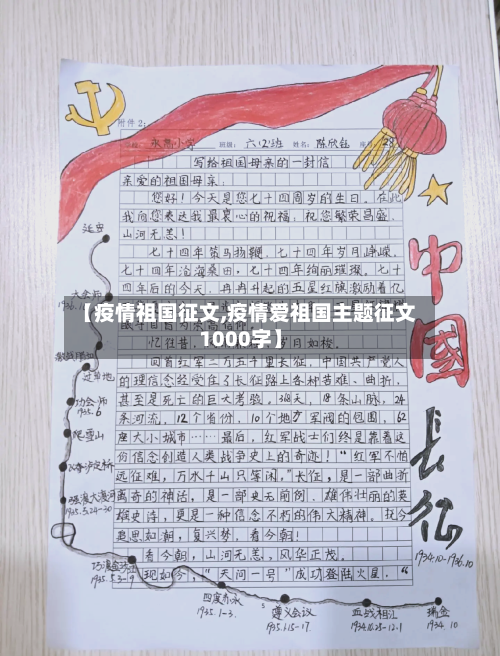 附件2:
班级: 六(2)班 姓名: 陈欣钰
写给祖国母亲的一封信
亲爱的祖国母亲:
您好!今天是您七十四周岁的生日。在此
我向您表达我最衷心的祝福:祝您繁荣昌盛,
山河无恙!
七十四年策马扬鞭,七十四年岁月峥嵘。
七十四年沧海桑田,七十四年绚丽璀璨。七十
四年后的今天,冉冉升起的五星红旗激励着亿
【疫情祖国征文,疫情爱祖国主题征文
1000字】
忆往昔,
岁月如梭。
回首红军二万五千里长征,中国共产党人
的理信念经受住了长征路上各种苦难、曲折,
甚至是死亡的巨大考验。368天,18条山脉,24
条河流,12个省份,10个地方军阀的包围,62
座大小城市……最后,红军战士们终是靠着这
份信念创造人类战争史上的奇迹!“红军不怕
远征难,万水千山只等闲。”长征,是一部曲折
离奇的神话,是一部史无前例、雄伟壮丽的英
雄史诗,更是一种信念不朽的伟大精神。抚今
追思如朝,复兴梦,看今朝!
看今朝,山河无恙、风华正茂。
现如今,“天问一号”成功登陆火星,“
中国
长征
1934.10-1936.10
延安
大会师
过草地
1935.6
爬雪山
飞夺泸定桥
强渡大渡河
1935.5.24-30
巧渡金沙江
1935.5.3-9
四渡赤水
1935.1-3.
遵义会议
1935.1.15-17.
血战湘江
1934.10.25-12.1
瑞金
1934.10